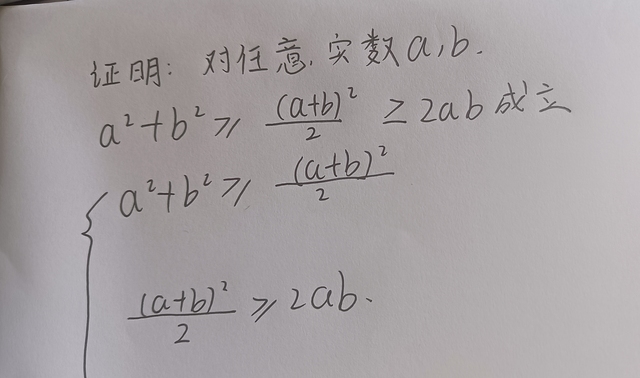 证明: 对任意, 实数a,b.
a²+b² ≥ (a+b)²/2 ≥ 2ab 成立
{ a²+b² ≥ (a+b)²/2
(a+b)²/2 ≥ 2ab.